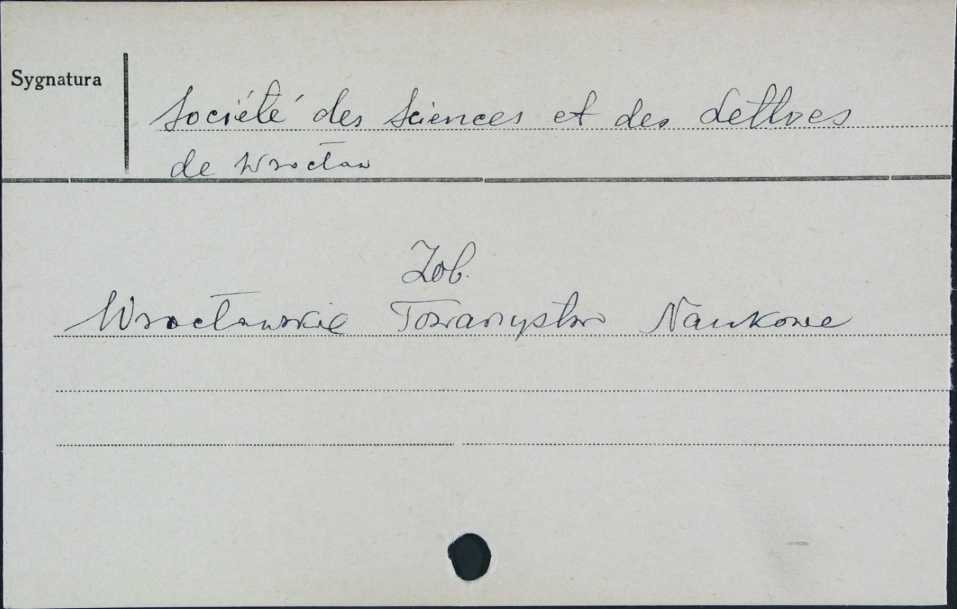 Sygnatura
Société des Sciences et des Lettres
de Wrocław
Zob.
Wrocławskie Towarzystwo Naukowe